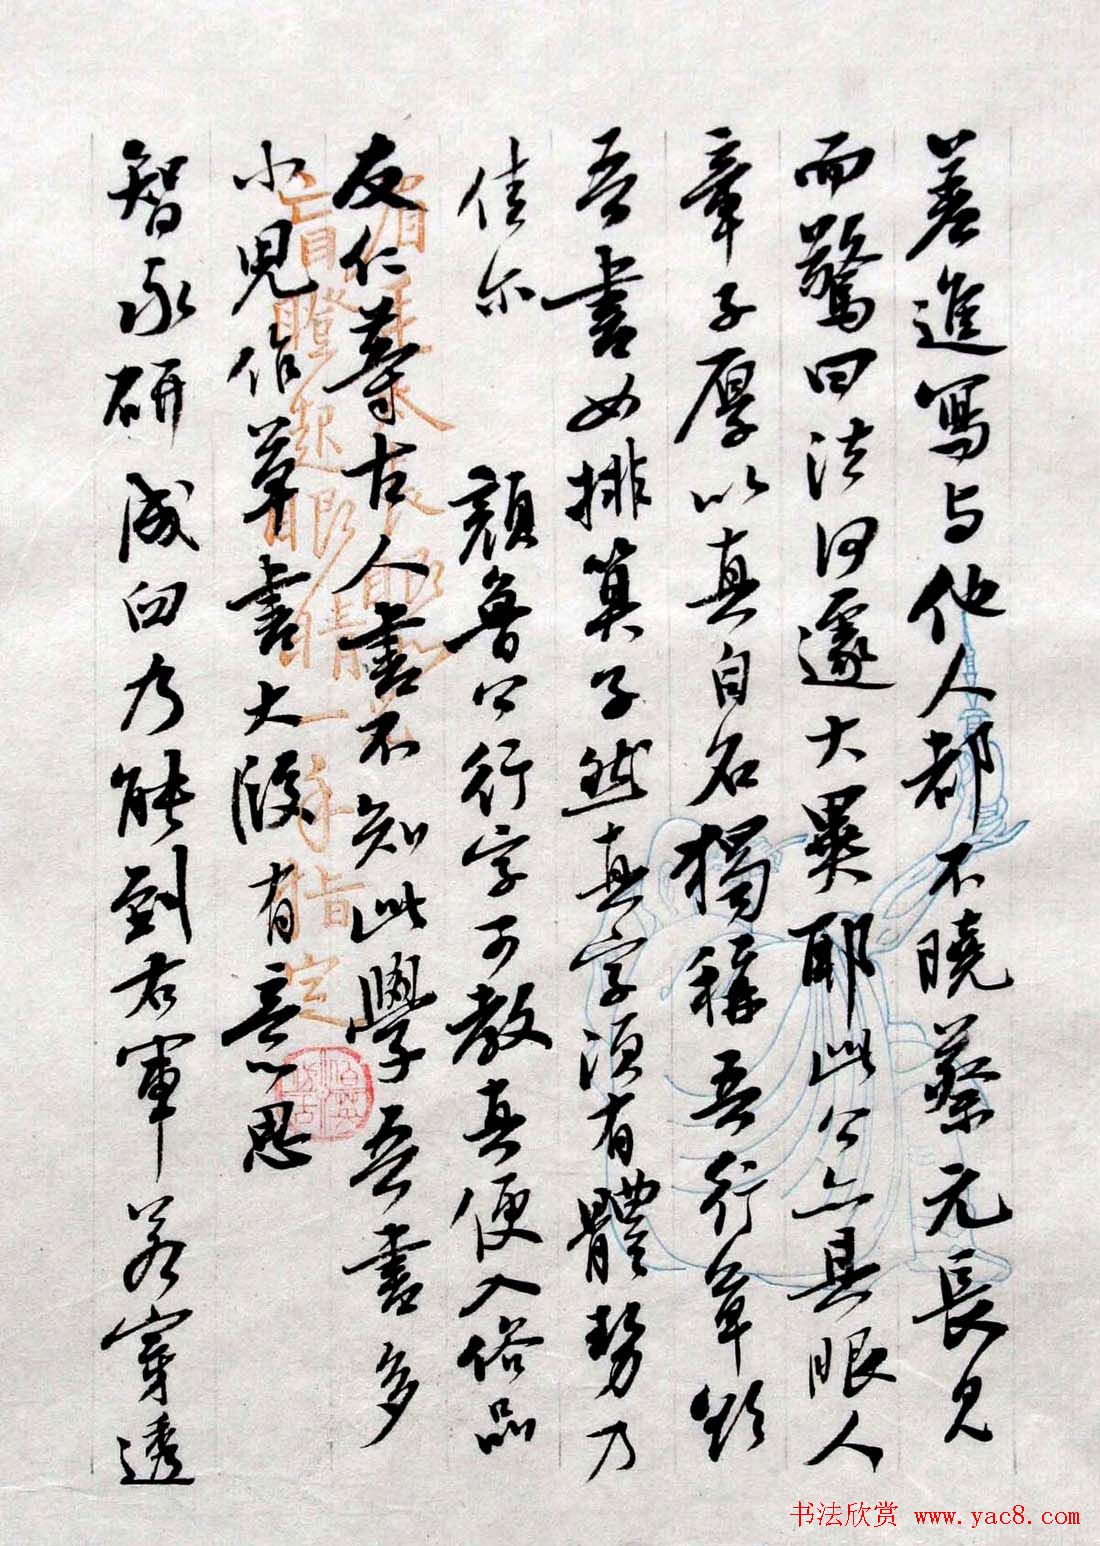 差進寫与他人都不曉蔡元長見
而驚曰法何遽大異耶此公亦具眼人
章子厚以真自名獨稱吾行草欲
吾書如排算子然真字須有體勢乃
佳尔 顏魯公行字可教真便入俗品
友仁等古人書不知此學吾書多
小兒作草書大段有意思
智永研成臼乃能到右軍若穿透
瞪起眼睛一手指定
书法欣赏 www.yac8.com